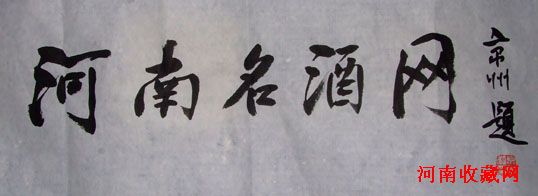 河南名酒网
京州题
河南收藏网